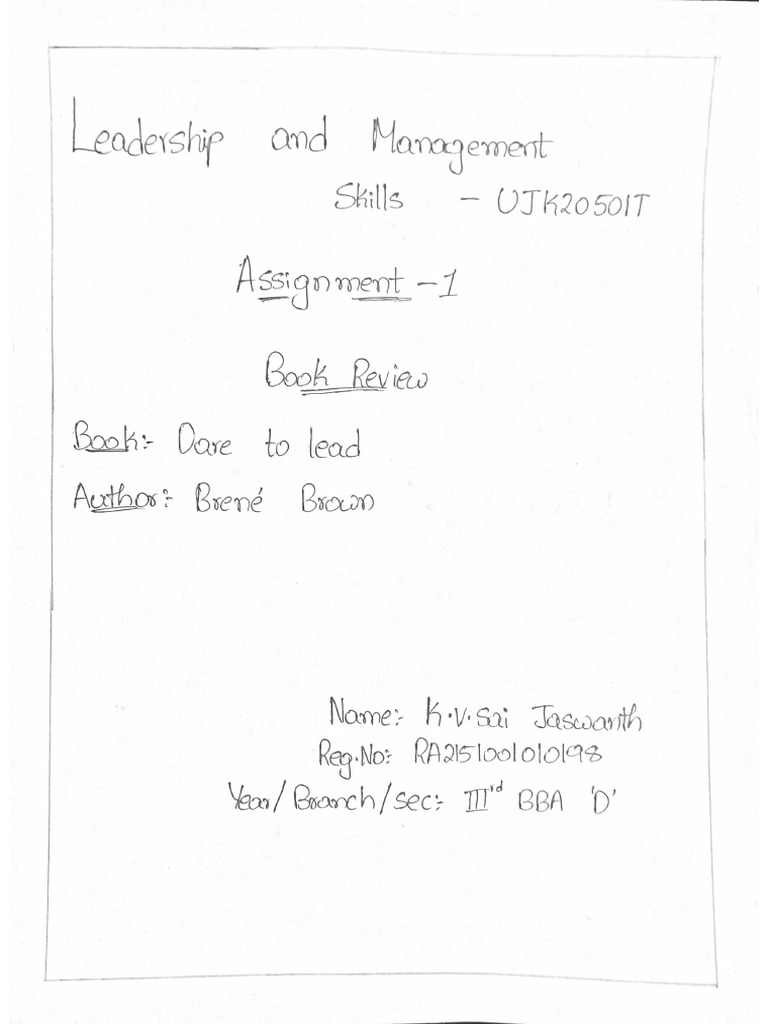 Leadership and Management
Skills - UJK20501T
Assignment-1
Book Review
Book:- Dare to lead
Author:- Brené Brown
Name:- K.V.Sai Jaswanth
Reg.No:- RA2151001010198
Year/Branch/sec:- III'rd BBA 'D'